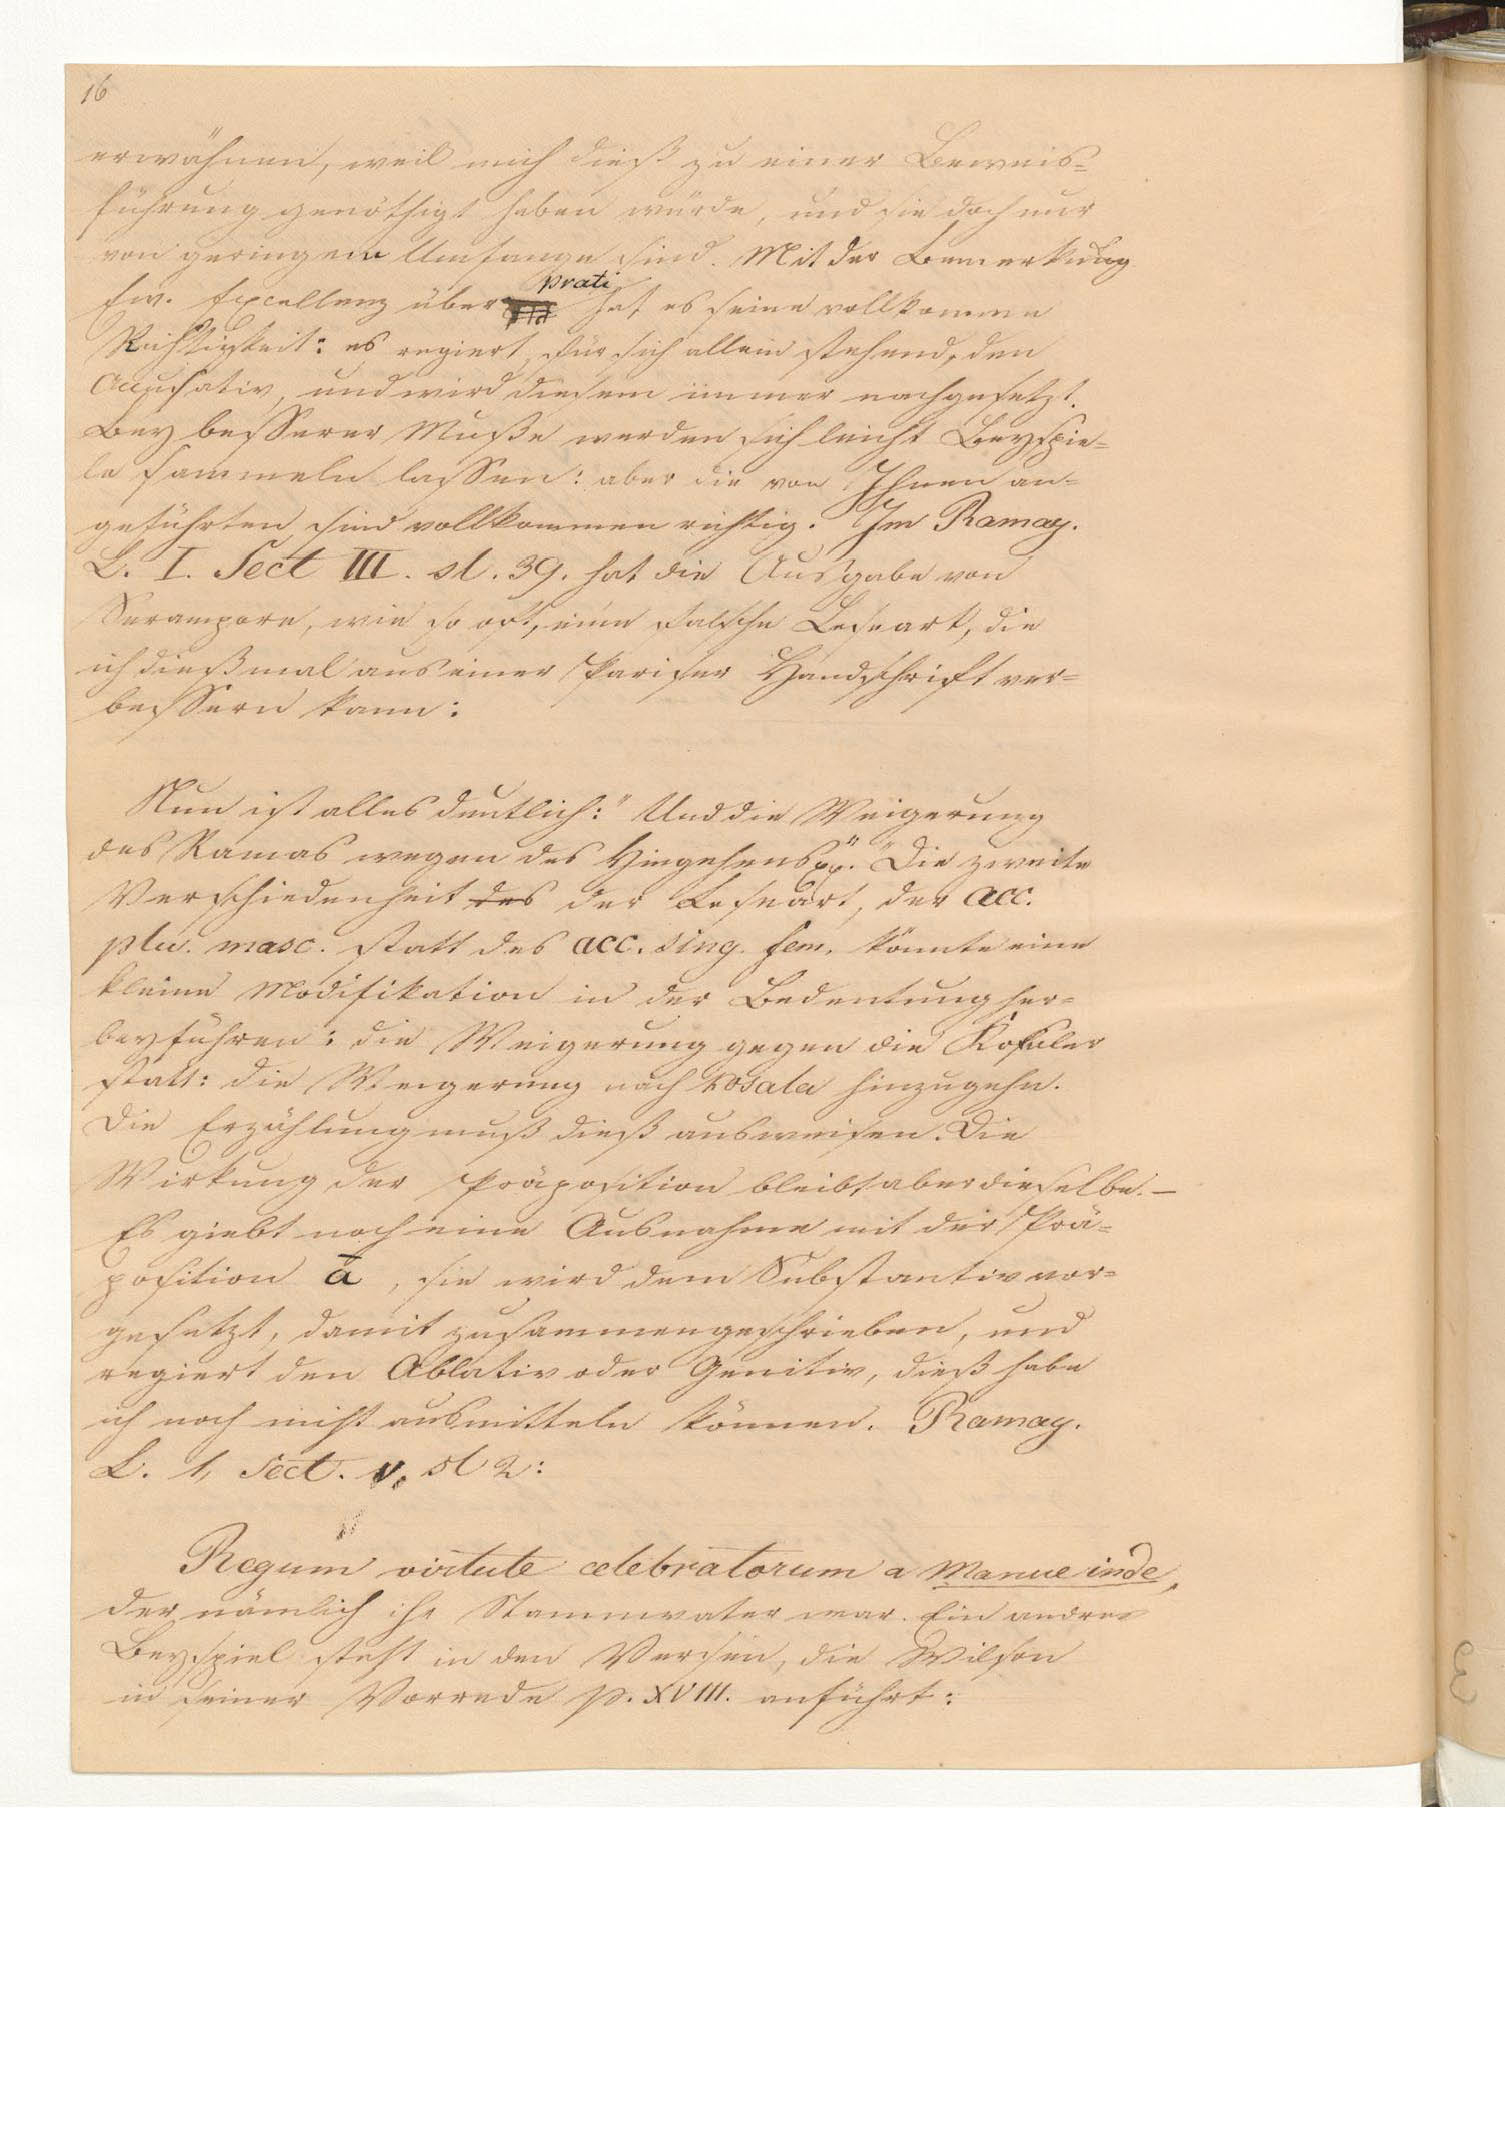 16
erwähnen, weil mich dieß zu einer Beweis=
führung genöthigt haben würde, und sie doch nur
von geringem Umfange sind. Mit der Bemerkung
Ew. Excellenz über prati hat es seine vollkomme
Richtigkeit: es regiert, für sich allein stehend, den
Accusativ, und wird diesem immer nachgesetzt.
Bey besserer Muße werden sich leicht Beyspie=
le sammeln lassen: aber die von Ihnen an=
geführten sind vollkommen richtig. Im Ramay.
L. I. Sect III. sl. 39. hat die Ausgabe von
Serampore, wie so oft, eine falsche Leseart, die
ich dießmal aus einer Pariser Handschrift ver=
bessern kann:
Nun ist alles deutlich: "Und die Weigerung
des Ramas wegen des Hingehens pp." Die zweite
Verschiedenheit des der Leseart, der acc.
plu. masc. statt des acc. sing. fem. könnte eine
kleine Modifikation in der Bedeutung her=
beyführen: die Weigerung gegen die Kosaler
statt: die Weigerung nach Kosala hinzugehn.
Die Erzählung muß dieß ausweisen. Die
Wirkung der Präposition bleibt aber dieselbe. —
Es giebt noch eine Ausnahme mit der Prä=
position ā, sie wird dem Substantiv vor=
gesetzt, damit zusammengeschrieben, und
regiert den Ablativ oder Genitiv, dieß habe
ich noch nicht ausmitteln können. Ramay.
L. 1, Sect. V. sl 2:
Regum virtute celebratorum a Manue inde,
der nämlich ihr Stammvater war. Ein andres
Beyspiel steht in den Versen, die Wilson
in seiner Vorrede p. XVIII. anführt: